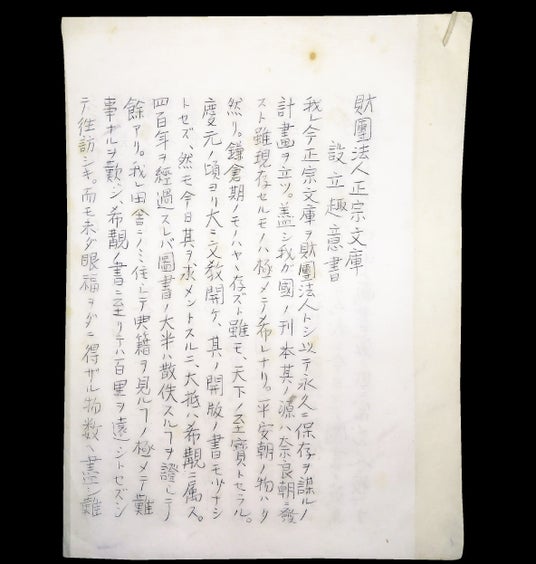 財團法人正宗文庫
設立趣意書
我レ今正宗文庫ヲ財團法人トシ以テ永久ニ保存ヲ謀ルノ
計畫ヲ立ツ。蓋シ我ガ國ノ刊本其ノ源ハ奈良朝ニ發
スト雖現存セルモノハ極メテ希レナリ。平安朝ノ物ハタ
然リ。鎌倉期ノモノハヤヽ存ズト雖モ、天下ノ至寶トセラル。
慶元ノ頃ヨリ大ニ文教開ケ、其ノ開版ノ書モ少ナシ
トセズ、然モ今日其ヲ求メントスルニ、大抵ハ希覯ニ属ス。
四百年ヲ經過スレバ圖書ノ大半ハ散佚スルヿヲ證シテ
餘アリ。我レ田舎ニノミ住シテ典籍ヲ見ルヿノ極メテ難
事ナルヲ歎シ、希覯ノ書ニ至リテハ百里ヲ遠シトセズシ
テ往訪シキ。而モ未ダ眼福ヲダニ得ザル物数ヘ盡シ難